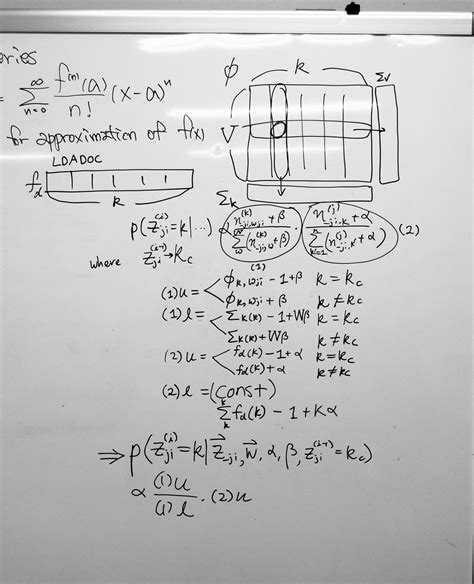 ories
= Σ_{n=0}^{∞} f^{(n)}(a)/n! (x-a)^n
for approximation of f(x)
LDADOC
f_α
k
ϕ k Σv
V
Σ_k
p(z_{ji}^{(i)}=k|...) α (n_{-ji,w_{ji}}^{(k)}+β)/(Σ_w^W(n_{-ji,w}^{(k)}+β)) · (n_{-ji,k}^{(j)}+α)/(Σ_{k'=1}(n_{-ji,k'}^{(j)}+α)) (2)
(1)
where z_{ji}^{(i-1)}→k_c
(1)u = < ϕ_{k,w_{ji}} -1+β k=k_c
ϕ_{k,w_{ji}} +β k≠k_c
(1)l = < Σ_k(k) -1+Wβ k=k_c
Σ_k(k)+Wβ k≠k_c
(2)u = < f_α(k) -1+α k=k_c
f_α(k)+α k≠k_c
(2)l = (const)
Σ_k^k f_α(k) -1+Kα
⇒ p(z_{ji}^{(i)}=k|z⃗_{-ji}, w⃗, α, β, z_{ji}^{(i-1)}=k_c)
α (1)u/(1)l · (2)u